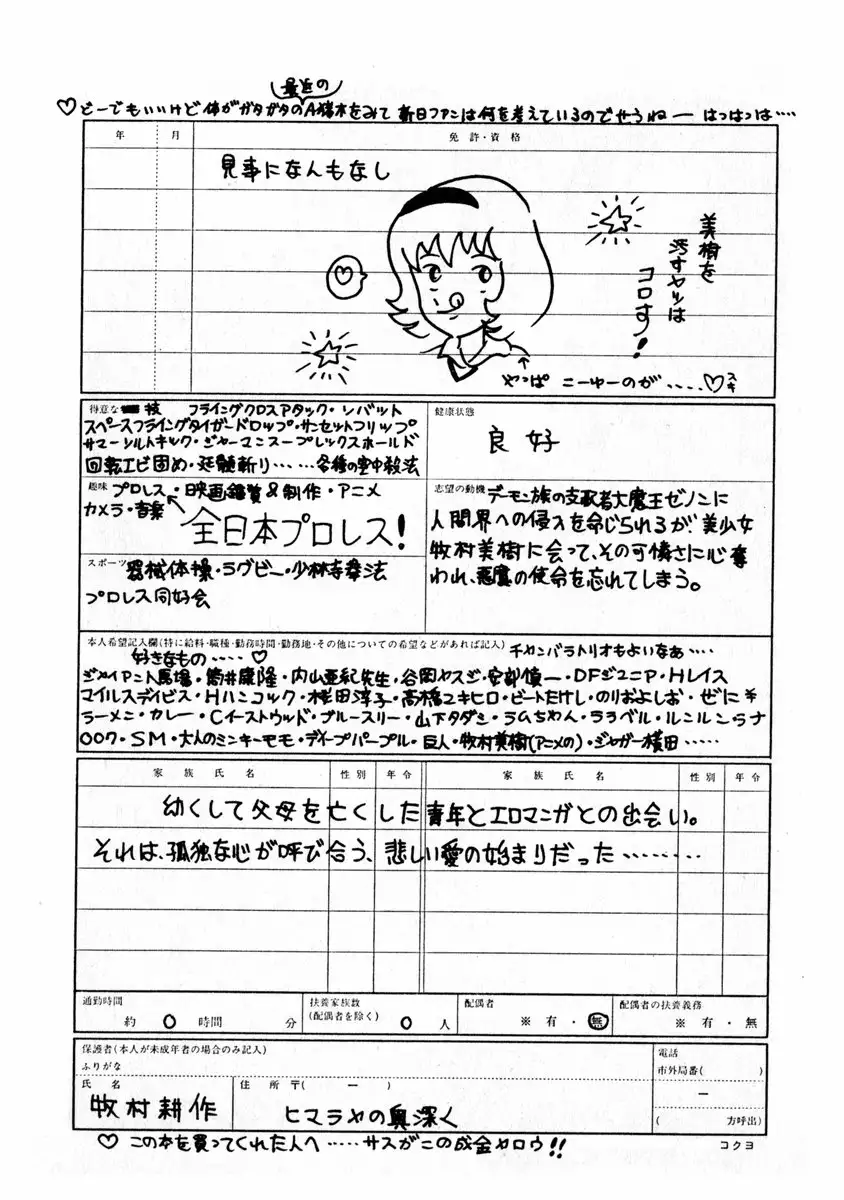 最近の
♡どーでもいいけど体がガタガタのA猪木をみて新日ファンは何を考えているのでせうねー はっはっは‥‥
年 月 免許・資格
見事になんもなし
美樹を
汚すヤツは
コロす!
やっぱ こーゆーのが‥‥‥♡スキ
得意な 技 フライングクロスアタック・トバット
スペースフライングタイガードロップ・サンセットフリップ
サマーソルトキック・ジャーマンスープレックスホールド
回転エビ固め・延髄斬り‥‥‥各種の空中殺法
健康状態
良好
趣味 プロレス・映画鑑賞&制作・アニメ
カメラ・音楽
全日本プロレス!
志望の動機 デーモン族の支配者大魔王ゼノンに
人間界への侵入を命じられるが、美少女
牧村美樹に会って、その可憐さに心奪
われ、悪魔の使命を忘れてしまう。
スポーツ 器械体操・ラグビー・少林寺拳法
プロレス同好会
本人希望記入欄(特に給料・職種・勤務時間・勤務地・その他についての希望などがあれば記入) チャンバラトリオもよいなあ‥‥
好きなもの‥‥♡
ジャイアント馬場・筒井康隆・内山亜紀先生・谷岡ヤスジ・安部慎一・DFジュニア・Hレイス
マイルスデイビス・Hハンコック・桜田淳子・高橋ユキヒロ・ビートたけし・のりおよしお・ぜに¥
ラーメン・カレー・Cイーストウッド・ブルースリー・山下タダシ・ラムちゃん・ララベル・ルンルンらナ
007・SM・大人のミンキーモモ・デイープパープル・巨人・牧村美樹(アニメの)・ジャガー横田‥‥‥
家族氏名 性別 年令 家族氏名 性別 年令
幼くして父母を亡くした青年とエロマンガとの出会い。
それは、孤独な心が呼び合う、悲しい愛の始まりだった‥‥‥‥
通勤時間
約 0 時間 分
扶養家族数
(配偶者を除く) 0 人
配偶者
※ 有・無
配偶者の扶養義務
※ 有・無
保護者(本人が未成年者の場合のみ記入)
ふりがな
氏 名 住 所 〒( ー )
牧村耕作 ヒマラヤの奥深く
電話
市外局番( )
ー
( 方呼出)
♡ この本を買ってくれた人へ‥‥‥サスがこの成金ヤロウ!!
コクヨ